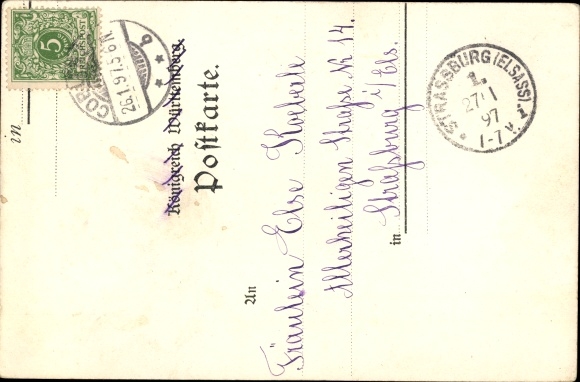 Königreich Württemberg.
Postkarte.
5
REICHSPOST
26.1.97.5-6N.
b
STRASSBURG (ELSASS).
1.
27 1
97
1-7
An
Fräulein Else Koeberle
Allerheiligen Straße N 14.
in Straßburg i/Els.
in